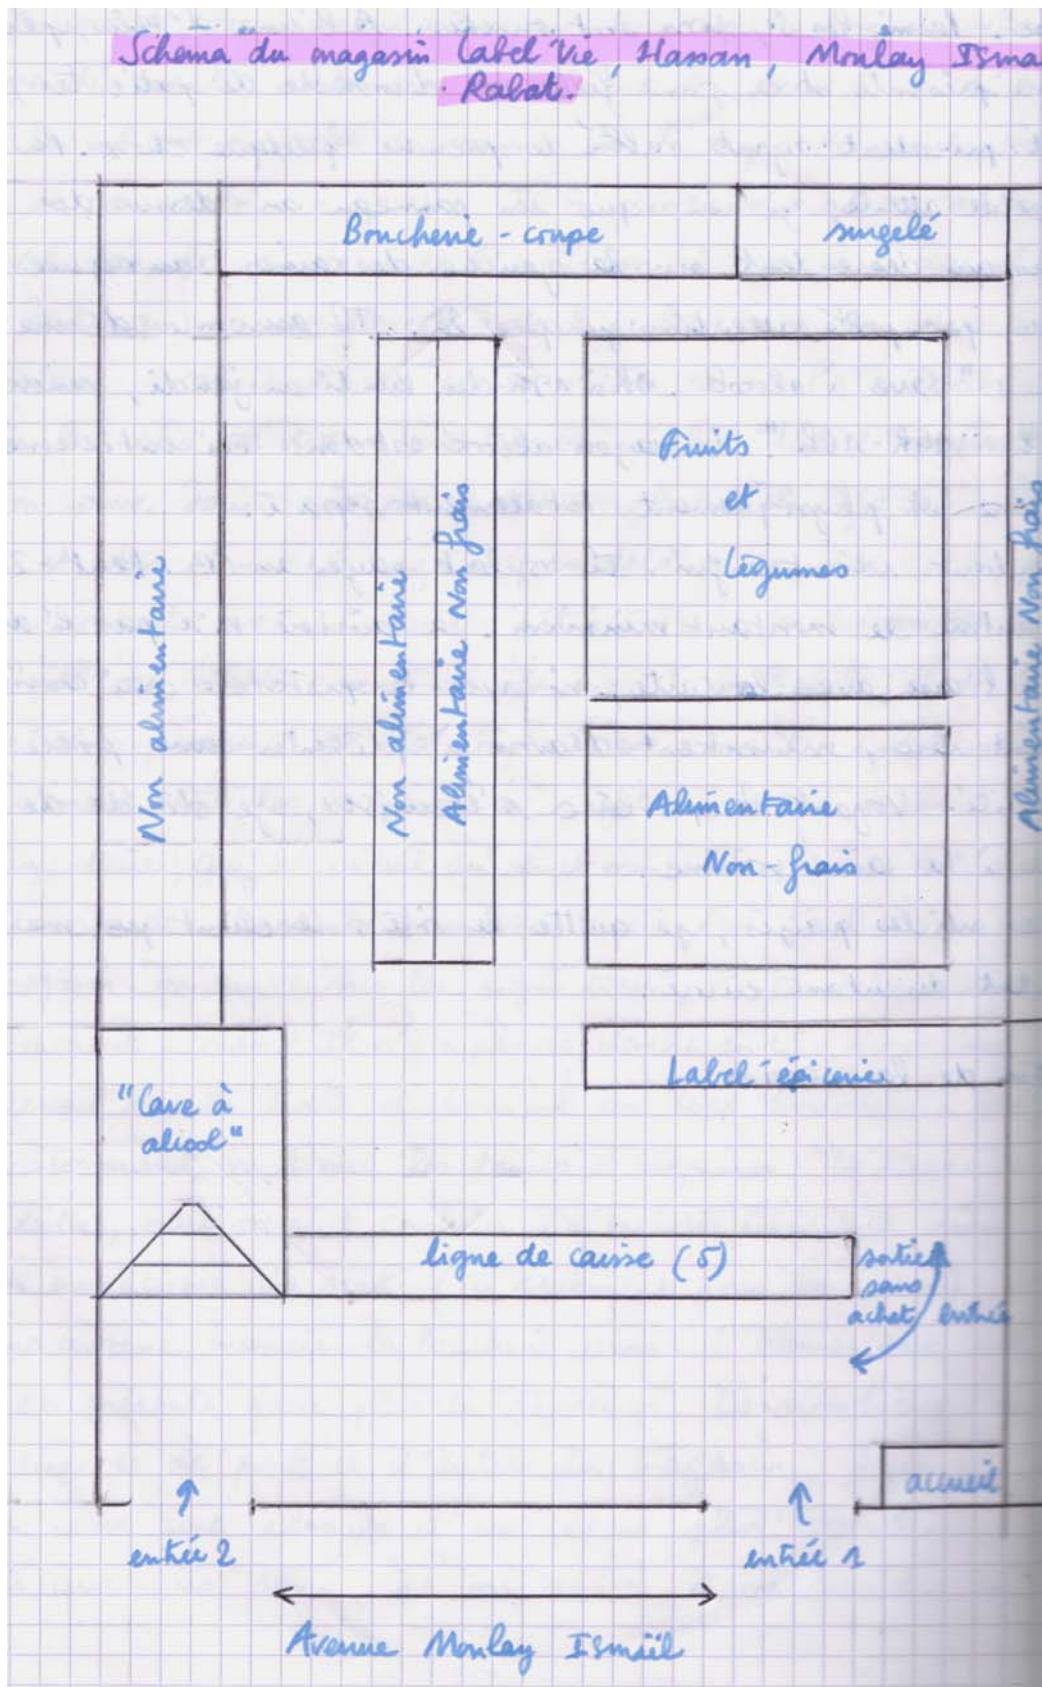 Schéma du magasin Label'Vie, Hassan, Moulay Isma
Rabat.
Boucherie - coupe
surgelé
Non alimentaire
Non alimentaire
Alimentaire Non frais
Fruits
et
Légumes
Alimentaire Non frais
Alimentaire
Non-frais
Label'épicerie
"Cave à
alcool"
ligne de caisse (5)
sortie
sans
achat
entrée
accueil
entrée 2
entrée 1
Avenue Moulay Ismaïl